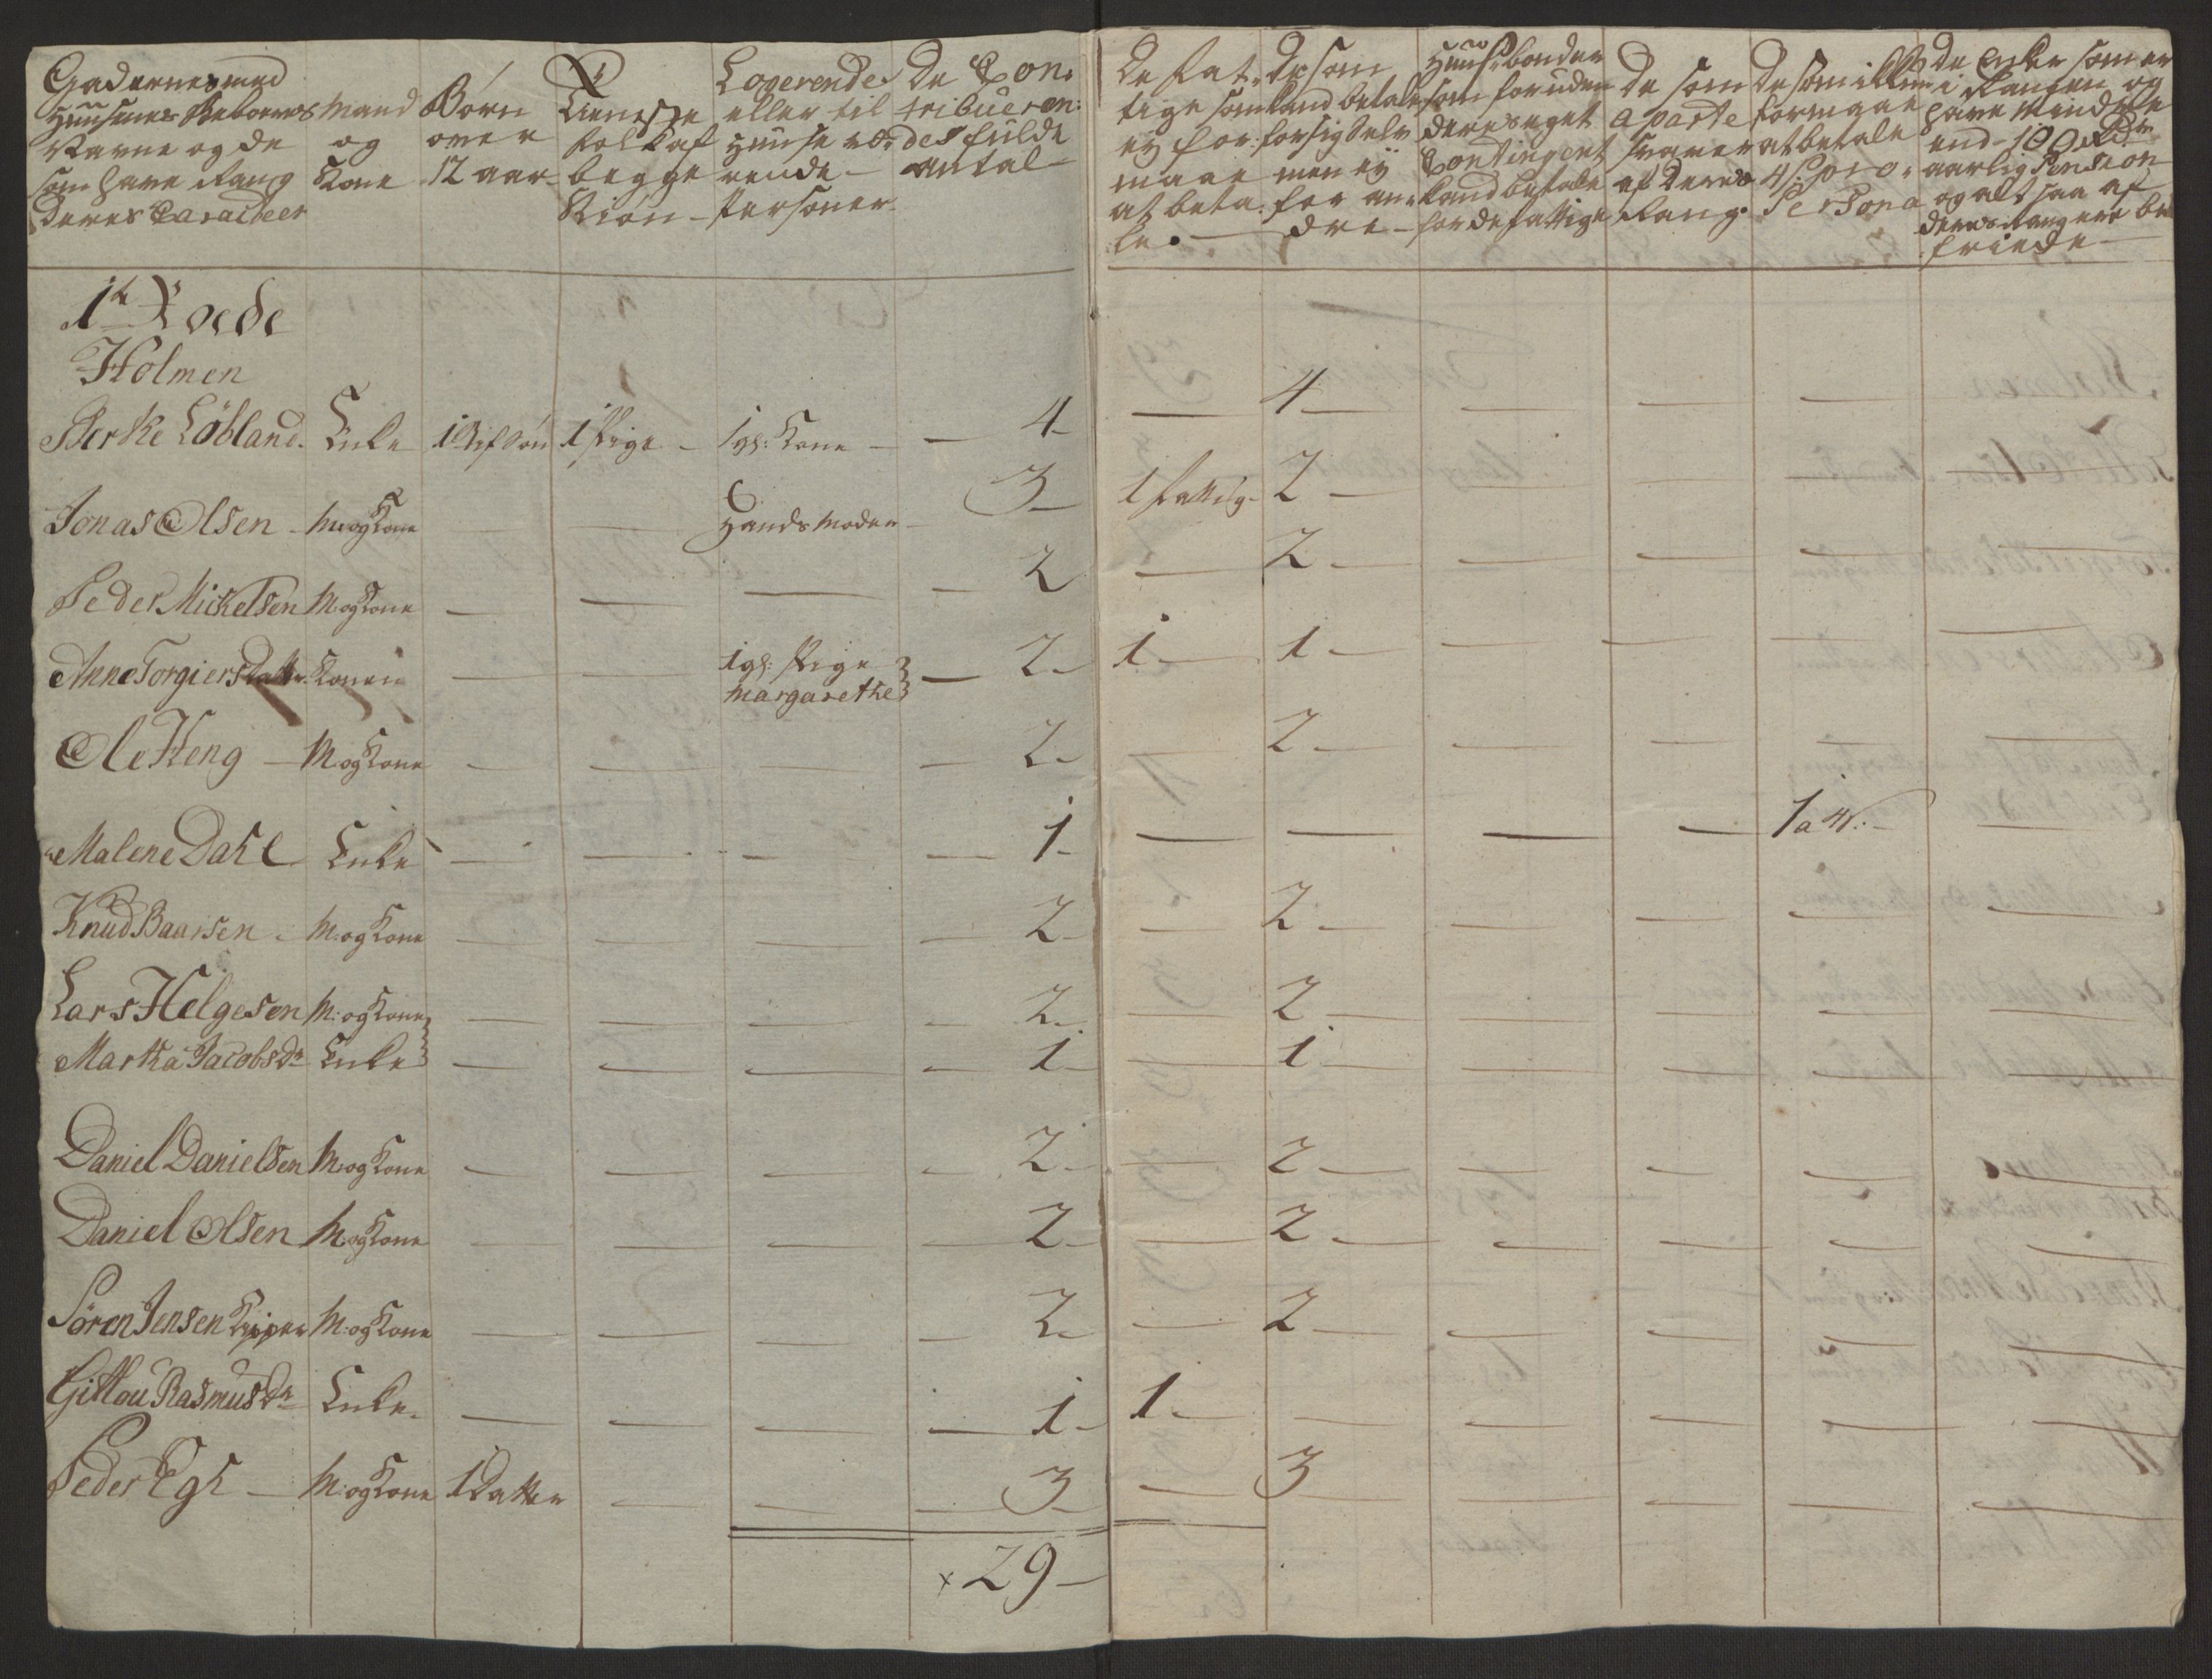 Gadernes med
Huusenes Beboeres
Navne og de
som have Rang
deres Caracteer
Mand
og
Kone
Børn
over
12 aar
Tieneste
folk af
begge
Kiøn
Logerende
eller til
Huuse væ-
rende
Personer
De Con-
tribueren-
des fulde
Antal
De Fat-
tige som
ey for-
maae
at beta-
le.
De som
kand betale
for sig selv
men ey
for an-
dre
Huusbonder
som foruden
deres eget
Contingent
kand betale
for de fattige
De som
aparte
svarer
af deres
Rang.
De som ikke
formaae
at betale
4 s: pro
Persona
De Enker som er
i Rangen og
have mindre
end 100 Rdr
aarlig Pension
og altsaa af
deres Rang ere be-
friede
1te Roede
Holmen
Berthe Löbland. Enke 1 Stifsön 1 Pige - 1 gl: Kone - 4 - 4 - - - -
Jonas Olsen - M: og Kone - - Hands Moder - 3 - 1 fattig - 2 -
Peder Mickelsen M: og Kone - - - - 2 - 2 - - - -
Anne Torgiersdatter Konen - - 1 gl: Pige
Margarethe - 2 - 1 - 1 - - - - -
Ole Heng - M: og Kone - - - - 2 - - 2 - - - - -
Malene Dahl Enke - - - - 1 - - - - - 1 a 4 s: - -
Knud Baarsen - M: og Kone - - - - 2 - - 2 - - - - -
Lars Helgesen M: og Kone - - - - 2 - - 2 - - - - -
Martha Jacobs Dr Enke - - - - 1 - - 1 - - - - -
Daniel Danielsen M: og Kone - - - - 2 - - 2 - - - - -
Daniel Olsen M: og Kone - - - - 2 - - 2 - - - - -
Sören Jensen Kipper M: og Kone - - - - 2 - - 2 - - - - -
Gittou Rasmus Dr Enke - - - - - 1 - 1 - - - - - -
Peder Egh - M: og Kone 1 Datter - - - 3 - - 3 - - - - -
x 29 -